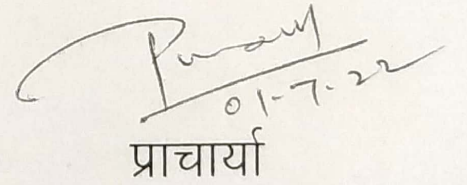 01-7-22
प्राचार्या